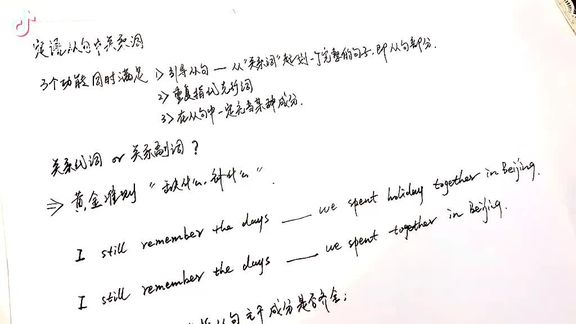 定语从句中关系词
3个功能同时满足 1> 引导从句 — 从"关系词"起到一个完整的句子,即从句部分.
2> 重复指代先行词
3> 在从句中一定充当某种成分.
关系代词 or 关系副词?
⇒ 黄金准则 "缺什么.补什么".
I still remember the days ___ we spent holiday together in Beijing.
I still remember the days ___ we spent together in Beijing.
从句主干成分是否齐全;